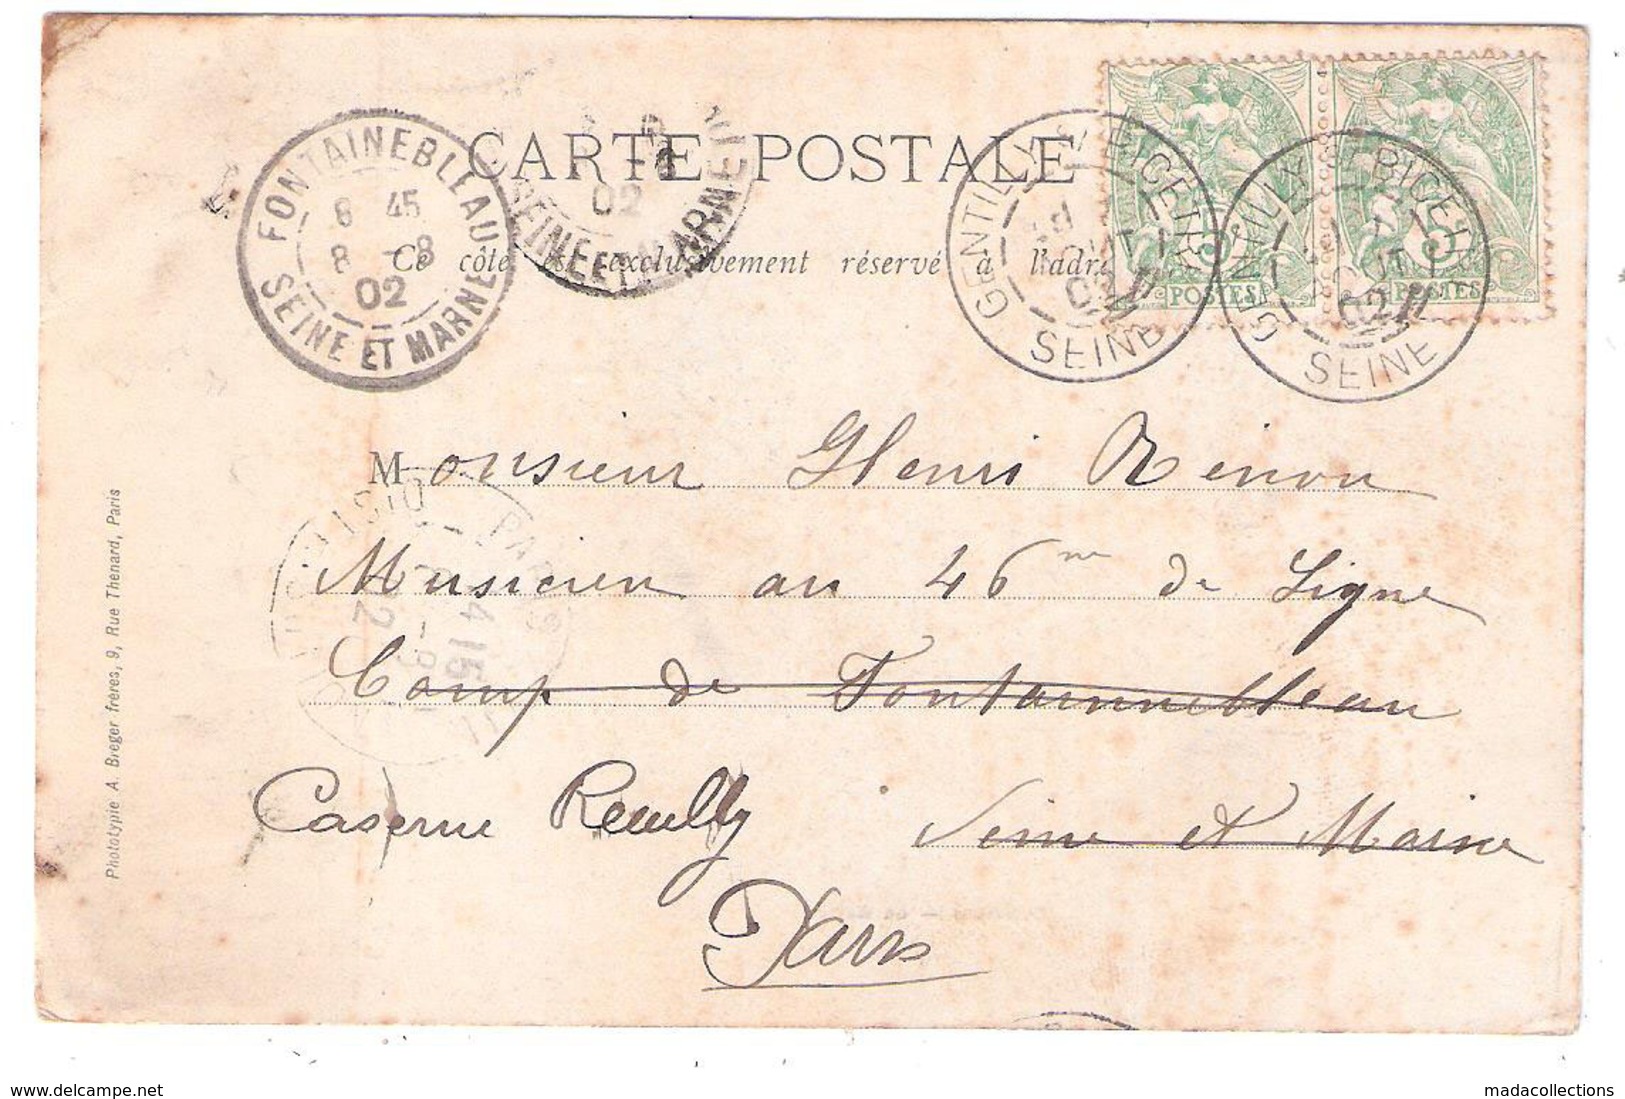 CARTE POSTALE
Ce côté est exclusivement réservé à l'adre
FONTAINEBLEAU
8 45
8 -8
02
SEINE ET MARNE
02
SEINE ET MARNE
GENTILLY BICETRE
02
SEINE
POSTES
GENTILLY BICETRE
02
SEINE
5
POSTES
Monsieur Henri Renou
Musicien au 46me de Ligne
Camp de Fontainebleau
Caserne Reuilly Seine et Marne
Paris
PARIS
4 15
DIST
Phototypie A. Breger frères, 9, Rue Thénard, Paris
www.delcampe.net
madacollections